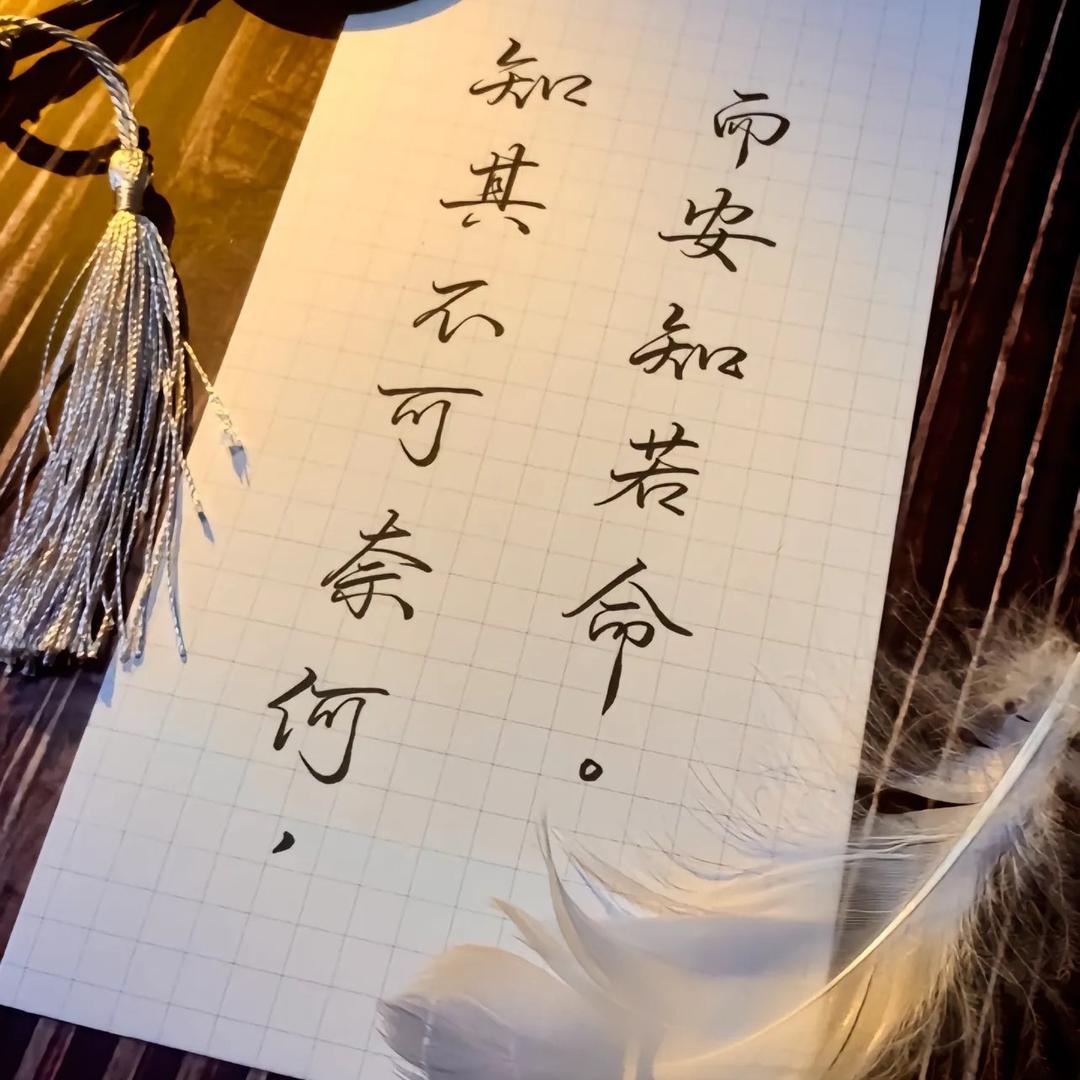 知其不可奈何，
而安知若命。